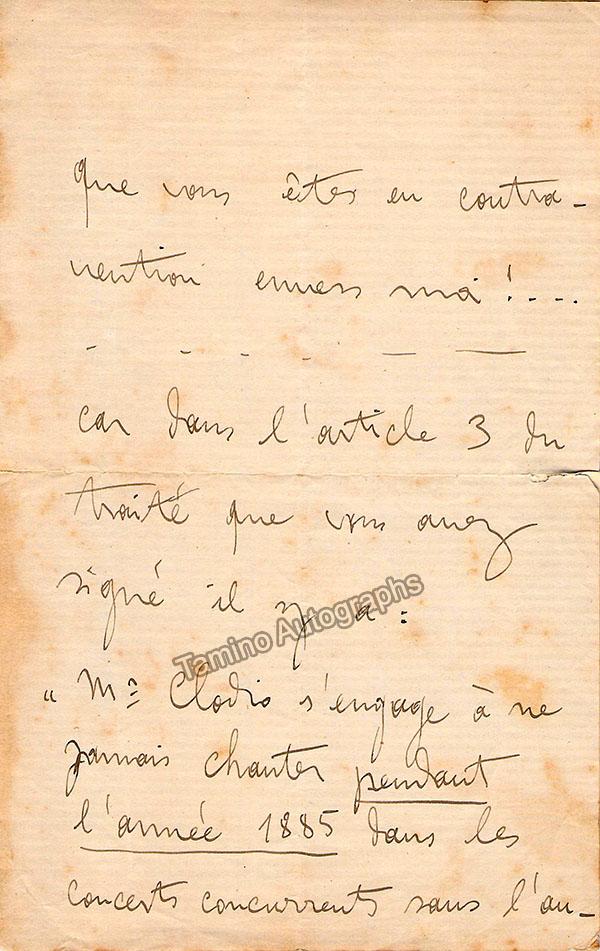 que vous êtes en contra-
vention envers moi !....
- - - - — —
car dans l'article 3 du
traité que vous avez
signé il y a :
Tamino Autographs
" Mr Clodio s'engage à ne
jamais chanter pendant
l'année 1885 dans les
concerts concurrents sans l'au-